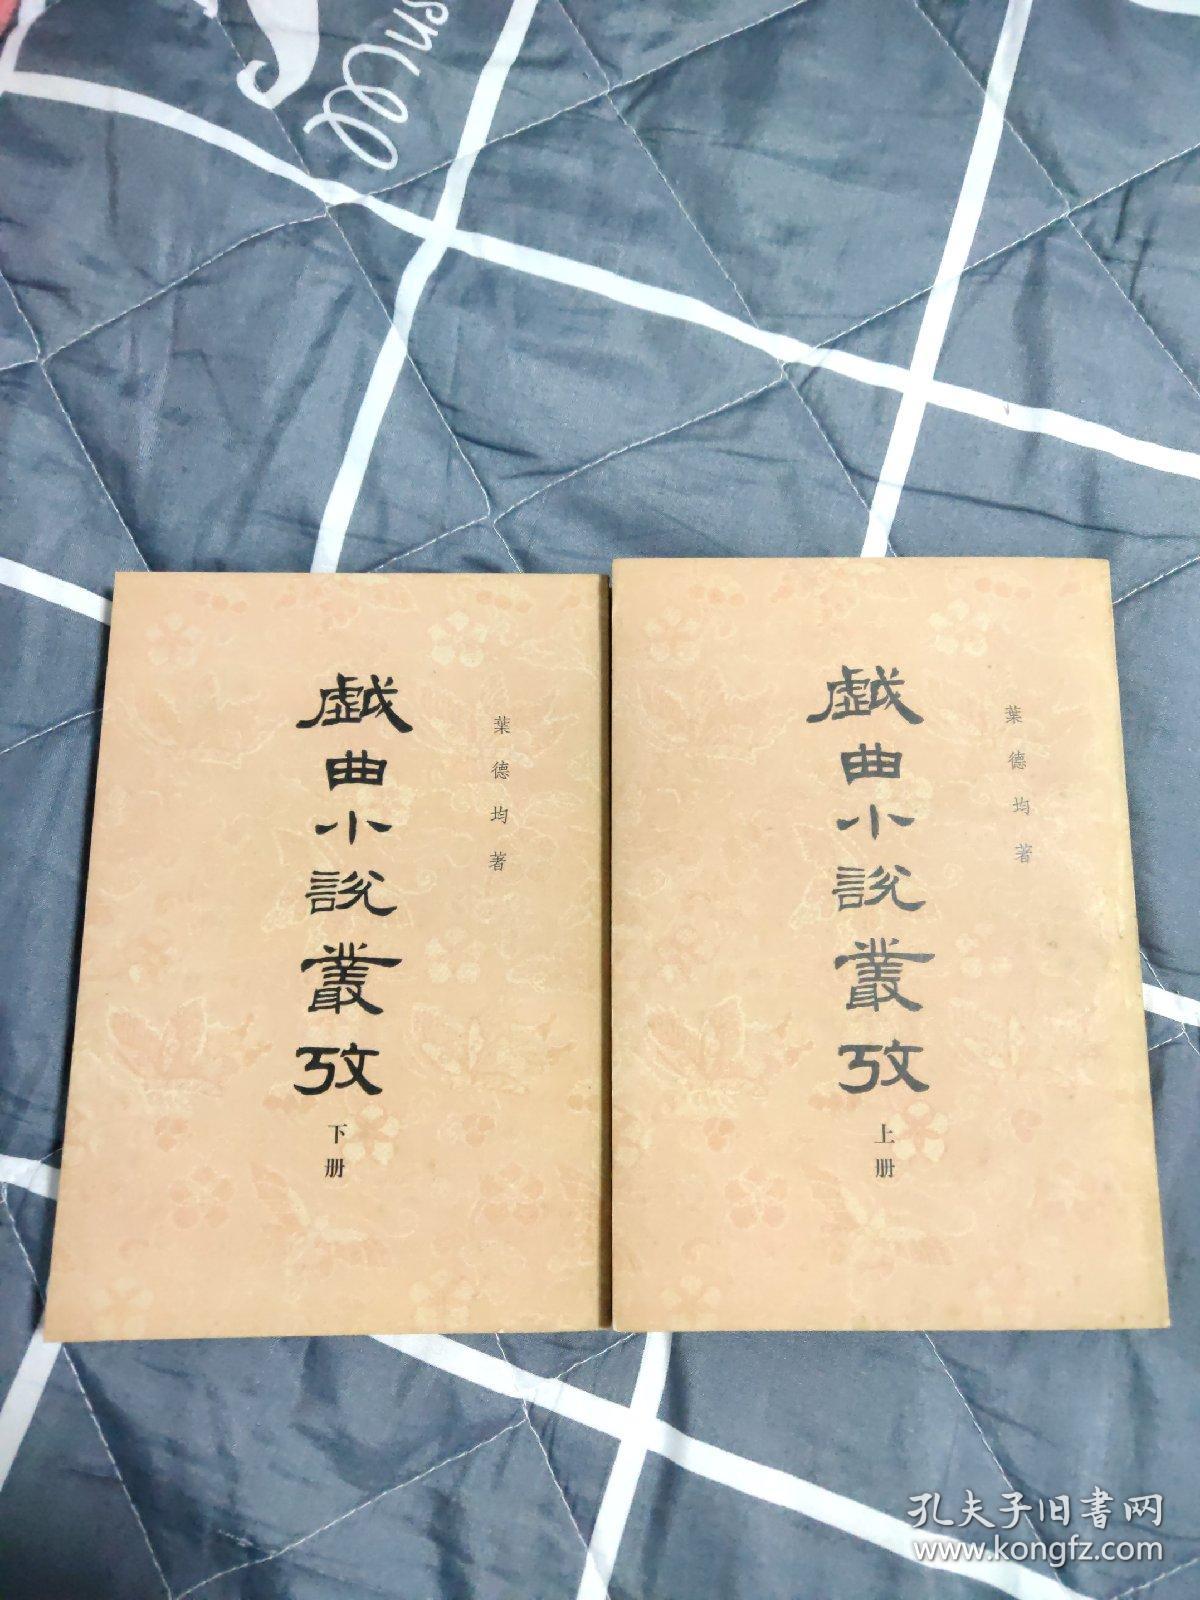 戯曲小說叢攷
上册
葉德均著
戯曲小說叢攷
下册
葉德均著
孔夫子旧書网
www.kongfz.com